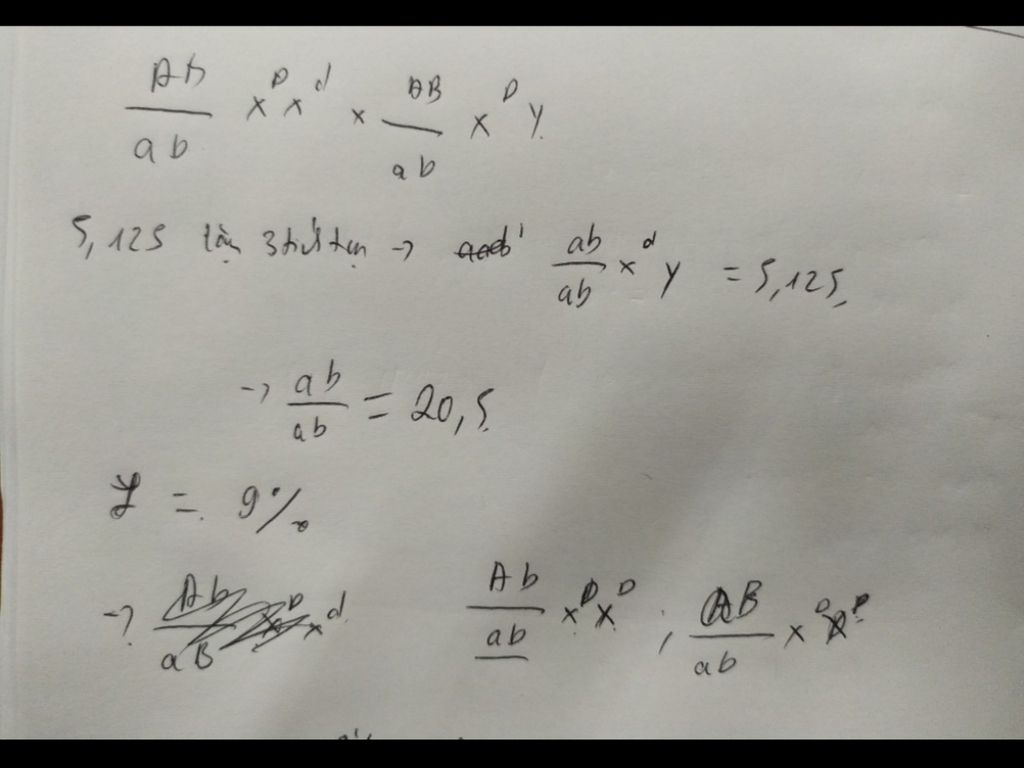 AB/ab X^D X^d x AB/ab X^D Y
5,125 lặn 3 tính trạng → ab/ab X^d Y = 5,125
→ ab/ab = 20,5
f = 9%
→ Ab/aB X^D X^d Ab/ab X^D X^D ; AB/ab X^D X^D